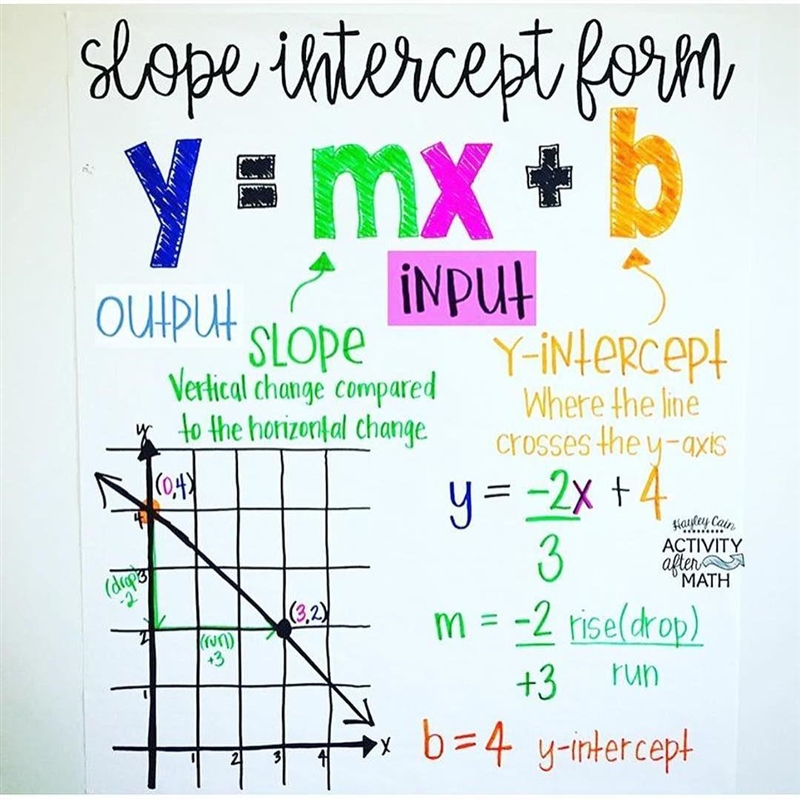 slope intercept form
y = mx + b
OUTPUT
INPUT
SLOPE
Vertical change compared
to the horizontal change
Y-INTERCEPT
Where the line
crosses the y-axis
y
(0,4)
4
3
(drop)
-2
2
(run)
+3
(3,2)
1
1
2
3
4
x
y = -2x + 4
3
Hayley Cain
ACTIVITY
after
MATH
m = -2 rise(drop)
+3 run
b = 4 y-intercept